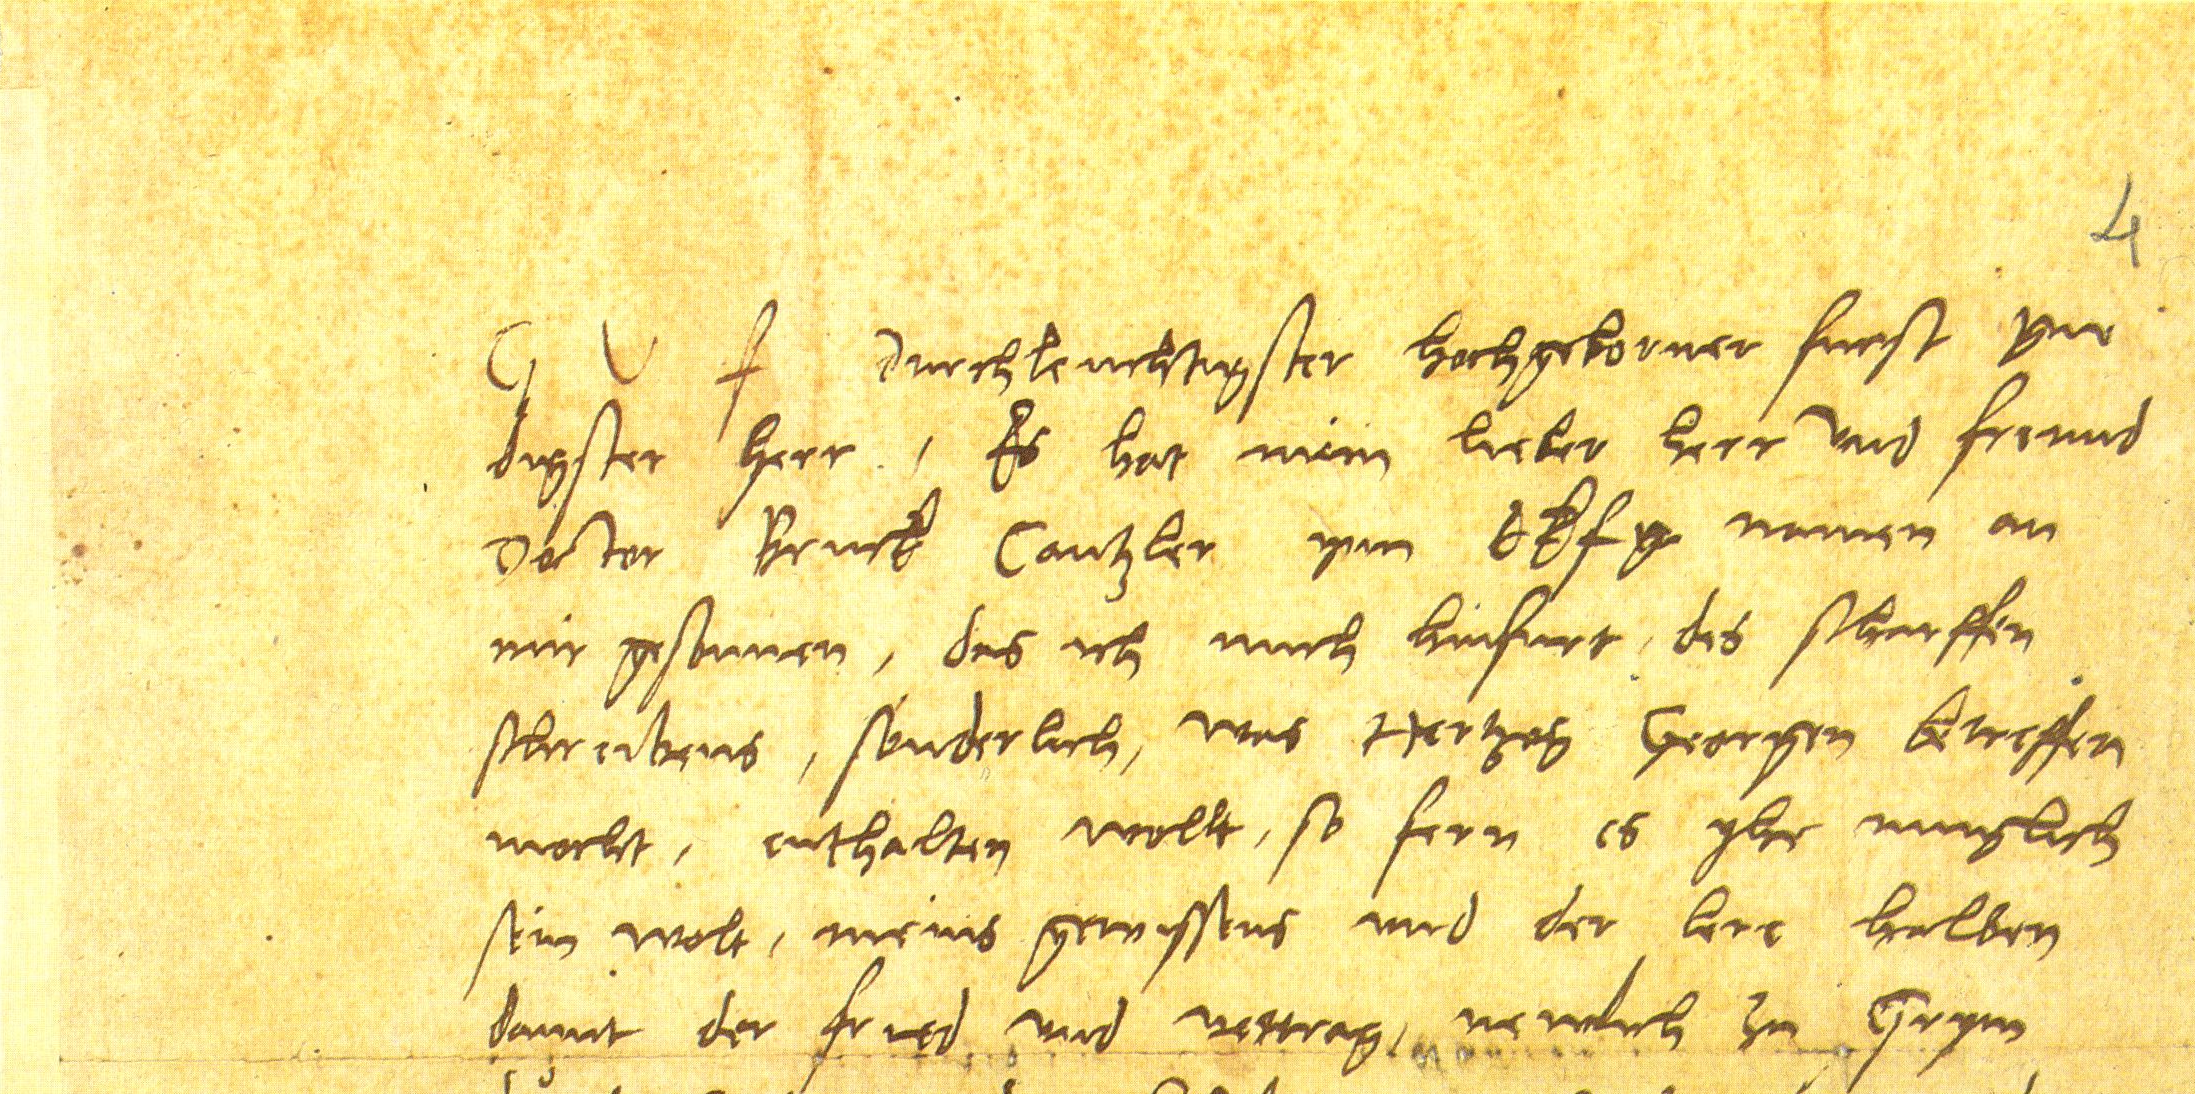 4
G V f Durchleuchtigster hochgeborner furst gne
digster herr, Es hat mein lieber herr vnd freund
Doctor Bruck Cantzler ynn E K f g namen an
mir gesonnen, das ich mich hinfurt des scharffen
schreibens, sonderlich, was Hertzog Georgen betreffen
mocht, enthalten wolt, so fern es yhr muglich
sein wolt, meins gewissens vnd der lere halben
damit der fried vnd vertrag, newlich zu Grym